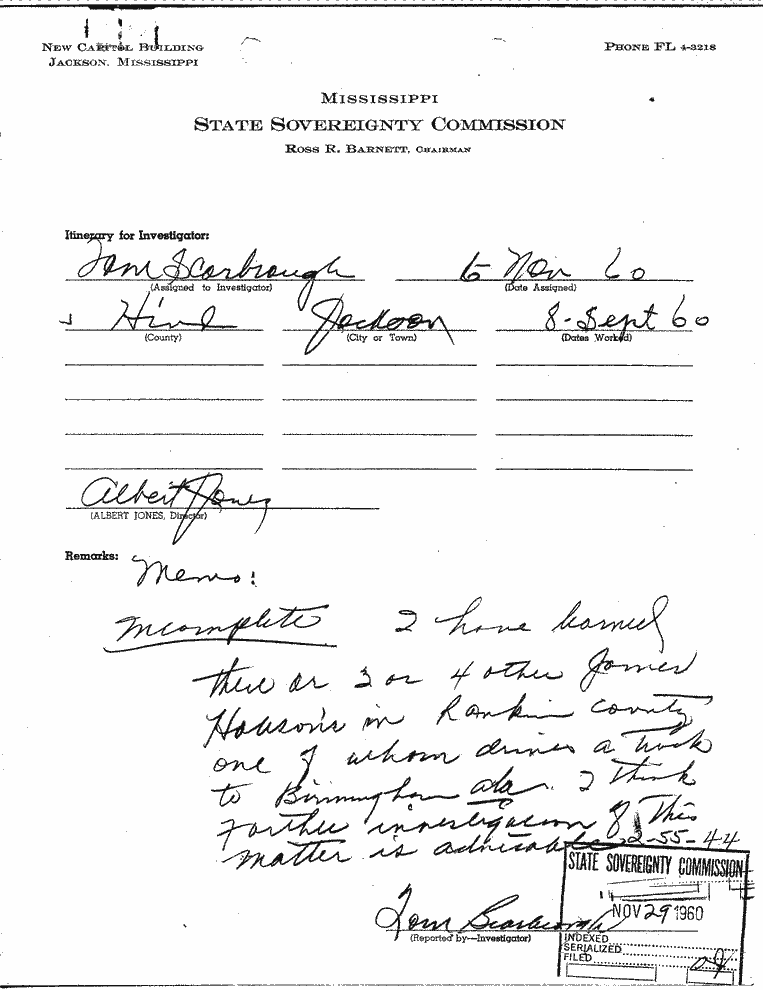 NEW CAPITOL BUILDING
JACKSON, MISSISSIPPI
PHONE FL 4-3218
MISSISSIPPI
STATE SOVEREIGNTY COMMISSION
ROSS R. BARNETT, CHAIRMAN
Itinerary for Investigator:
Tom Scarbrough
Nov 60
(Assigned to Investigator)
(Date Assigned)
Hind Jackson 8-Sept 60
(County)
(City or Town)
(Dates Worked)
Albert Jones
(ALBERT JONES, Director)
Remarks:
Memo:
Incomplete I have learned
there ar 3 or 4 other James
in Rankin County
one of whom drives a truck
to Birmingham Ala. I think
further investigation of This
matter is advisable
2-55-44
STATE SOVEREIGNTY COMMISSION
NOV 29 1960
INDEXED
SERIALIZED
FILED
Tom Scarbrough
(Reported by—Investigator)